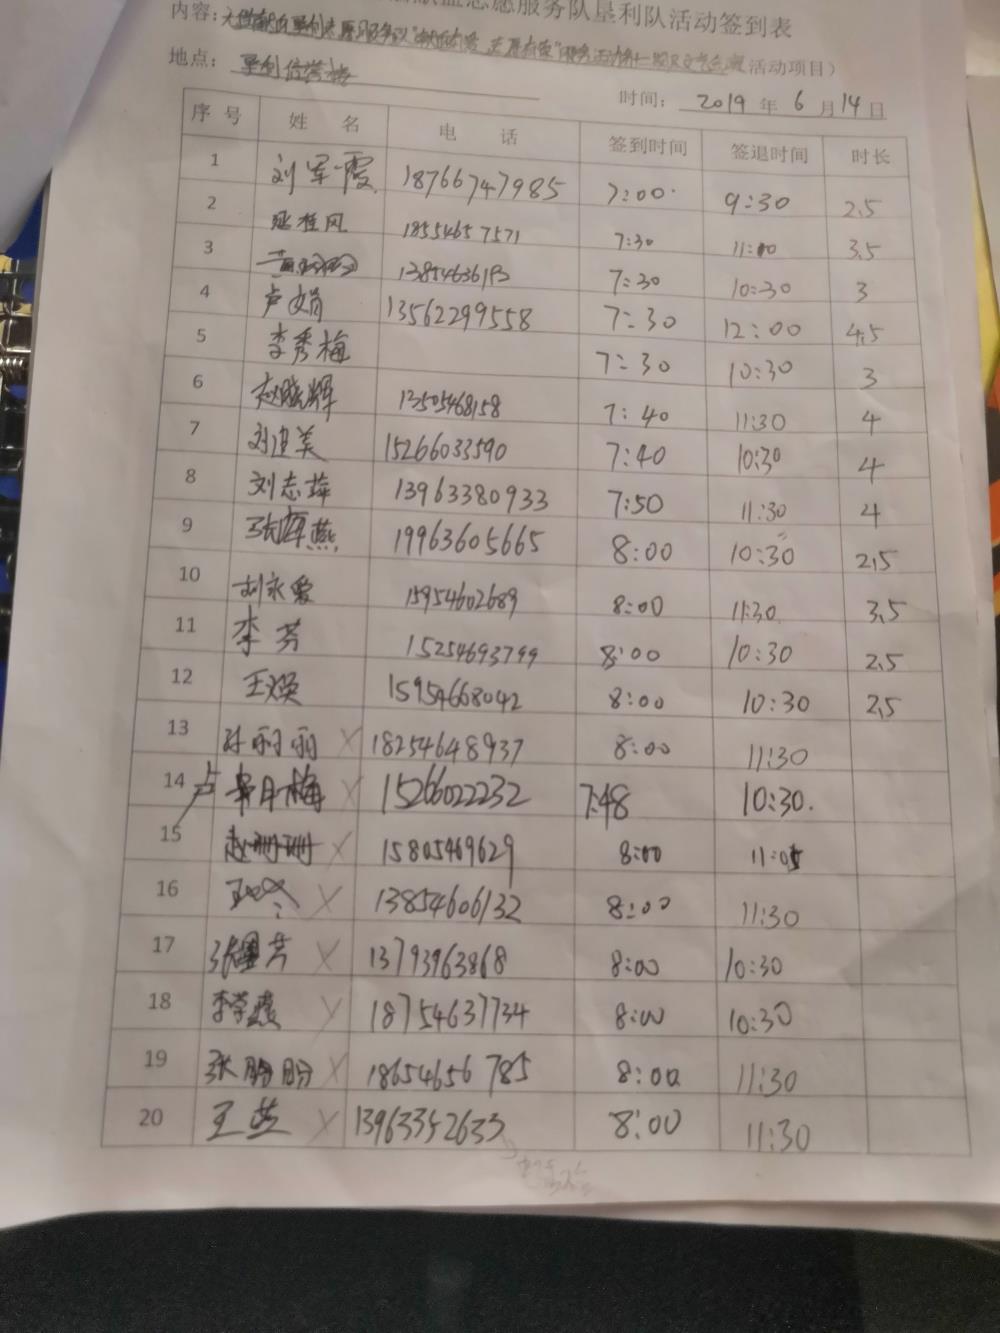 献血志愿服务队垦利队活动签到表
内容: 活动项目)
地点:
时间: 2019 年 6 月 14 日
序 号 姓 名 电 话 签到时间 签退时间 时长
1 刘军霞 18766747985 7:00 9:30 2.5
2 桂风 18554657571 7:30 11:00 3.5
3 7:30 10:30 3
4 卢娟 13562299558 7:30 12:00 4.5
5 李秀梅 7:30 10:30 3
6 赵晓辉 13505468158 7:40 11:30 4
7 刘建美 15266033590 7:40 10:30 4
8 刘志萍 13963380933 7:50 11:30 4
9 张 燕 19963605665 8:00 10:30 2.5
10 刘永爱 15954602689 8:00 11:30 3.5
11 李芳 15254693799 8:00 10:30 2.5
12 王焕 15954668042 8:00 10:30 2.5
13 孙丽丽 X 18254648937 8:00 11:30
14 卢 月梅 X 15266022232 7:48 10:30.
15 赵珊珊 X 15805469629 8:00 11:05
16 X 13854606132 8:00 11:30
17 张 芳 X 13793963868 8:00 10:30
18 李 X 18754637734 8:00 10:30
19 张盼盼 X 18654656785 8:00 11:30
20 王芸 X 13963352633 8:00 11:30